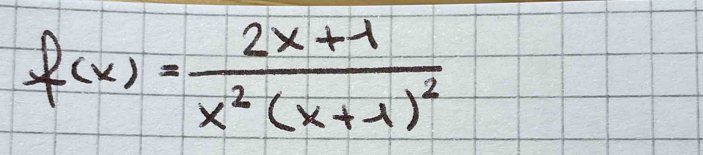 f(x) = \frac{2x+1}{x^2(x+1)^2}